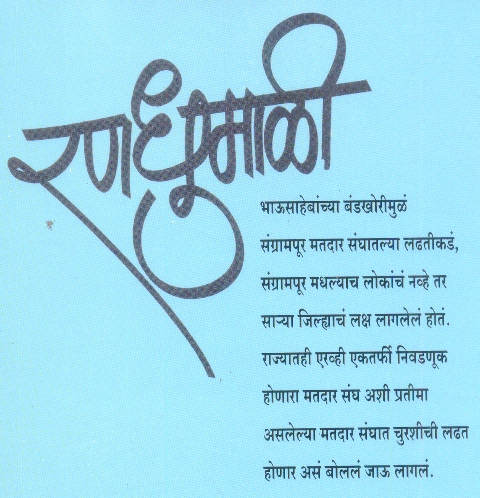 रणधुमाळी
भाऊसाहेबांच्या बंडखोरीमुळं
संग्रामपूर मतदार संघातल्या लढतीकडं,
संग्रामपूर मधल्याच लोकांचं नव्हे तर
साऱ्या जिल्ह्याचं लक्ष लागलेलं होतं.
राज्यातही एरव्ही एकतर्फी निवडणूक
होणारा मतदार संघ अशी प्रतीमा
असलेल्या मतदार संघात चुरशीची लढत
होणार असं बोललं जाऊ लागलं.